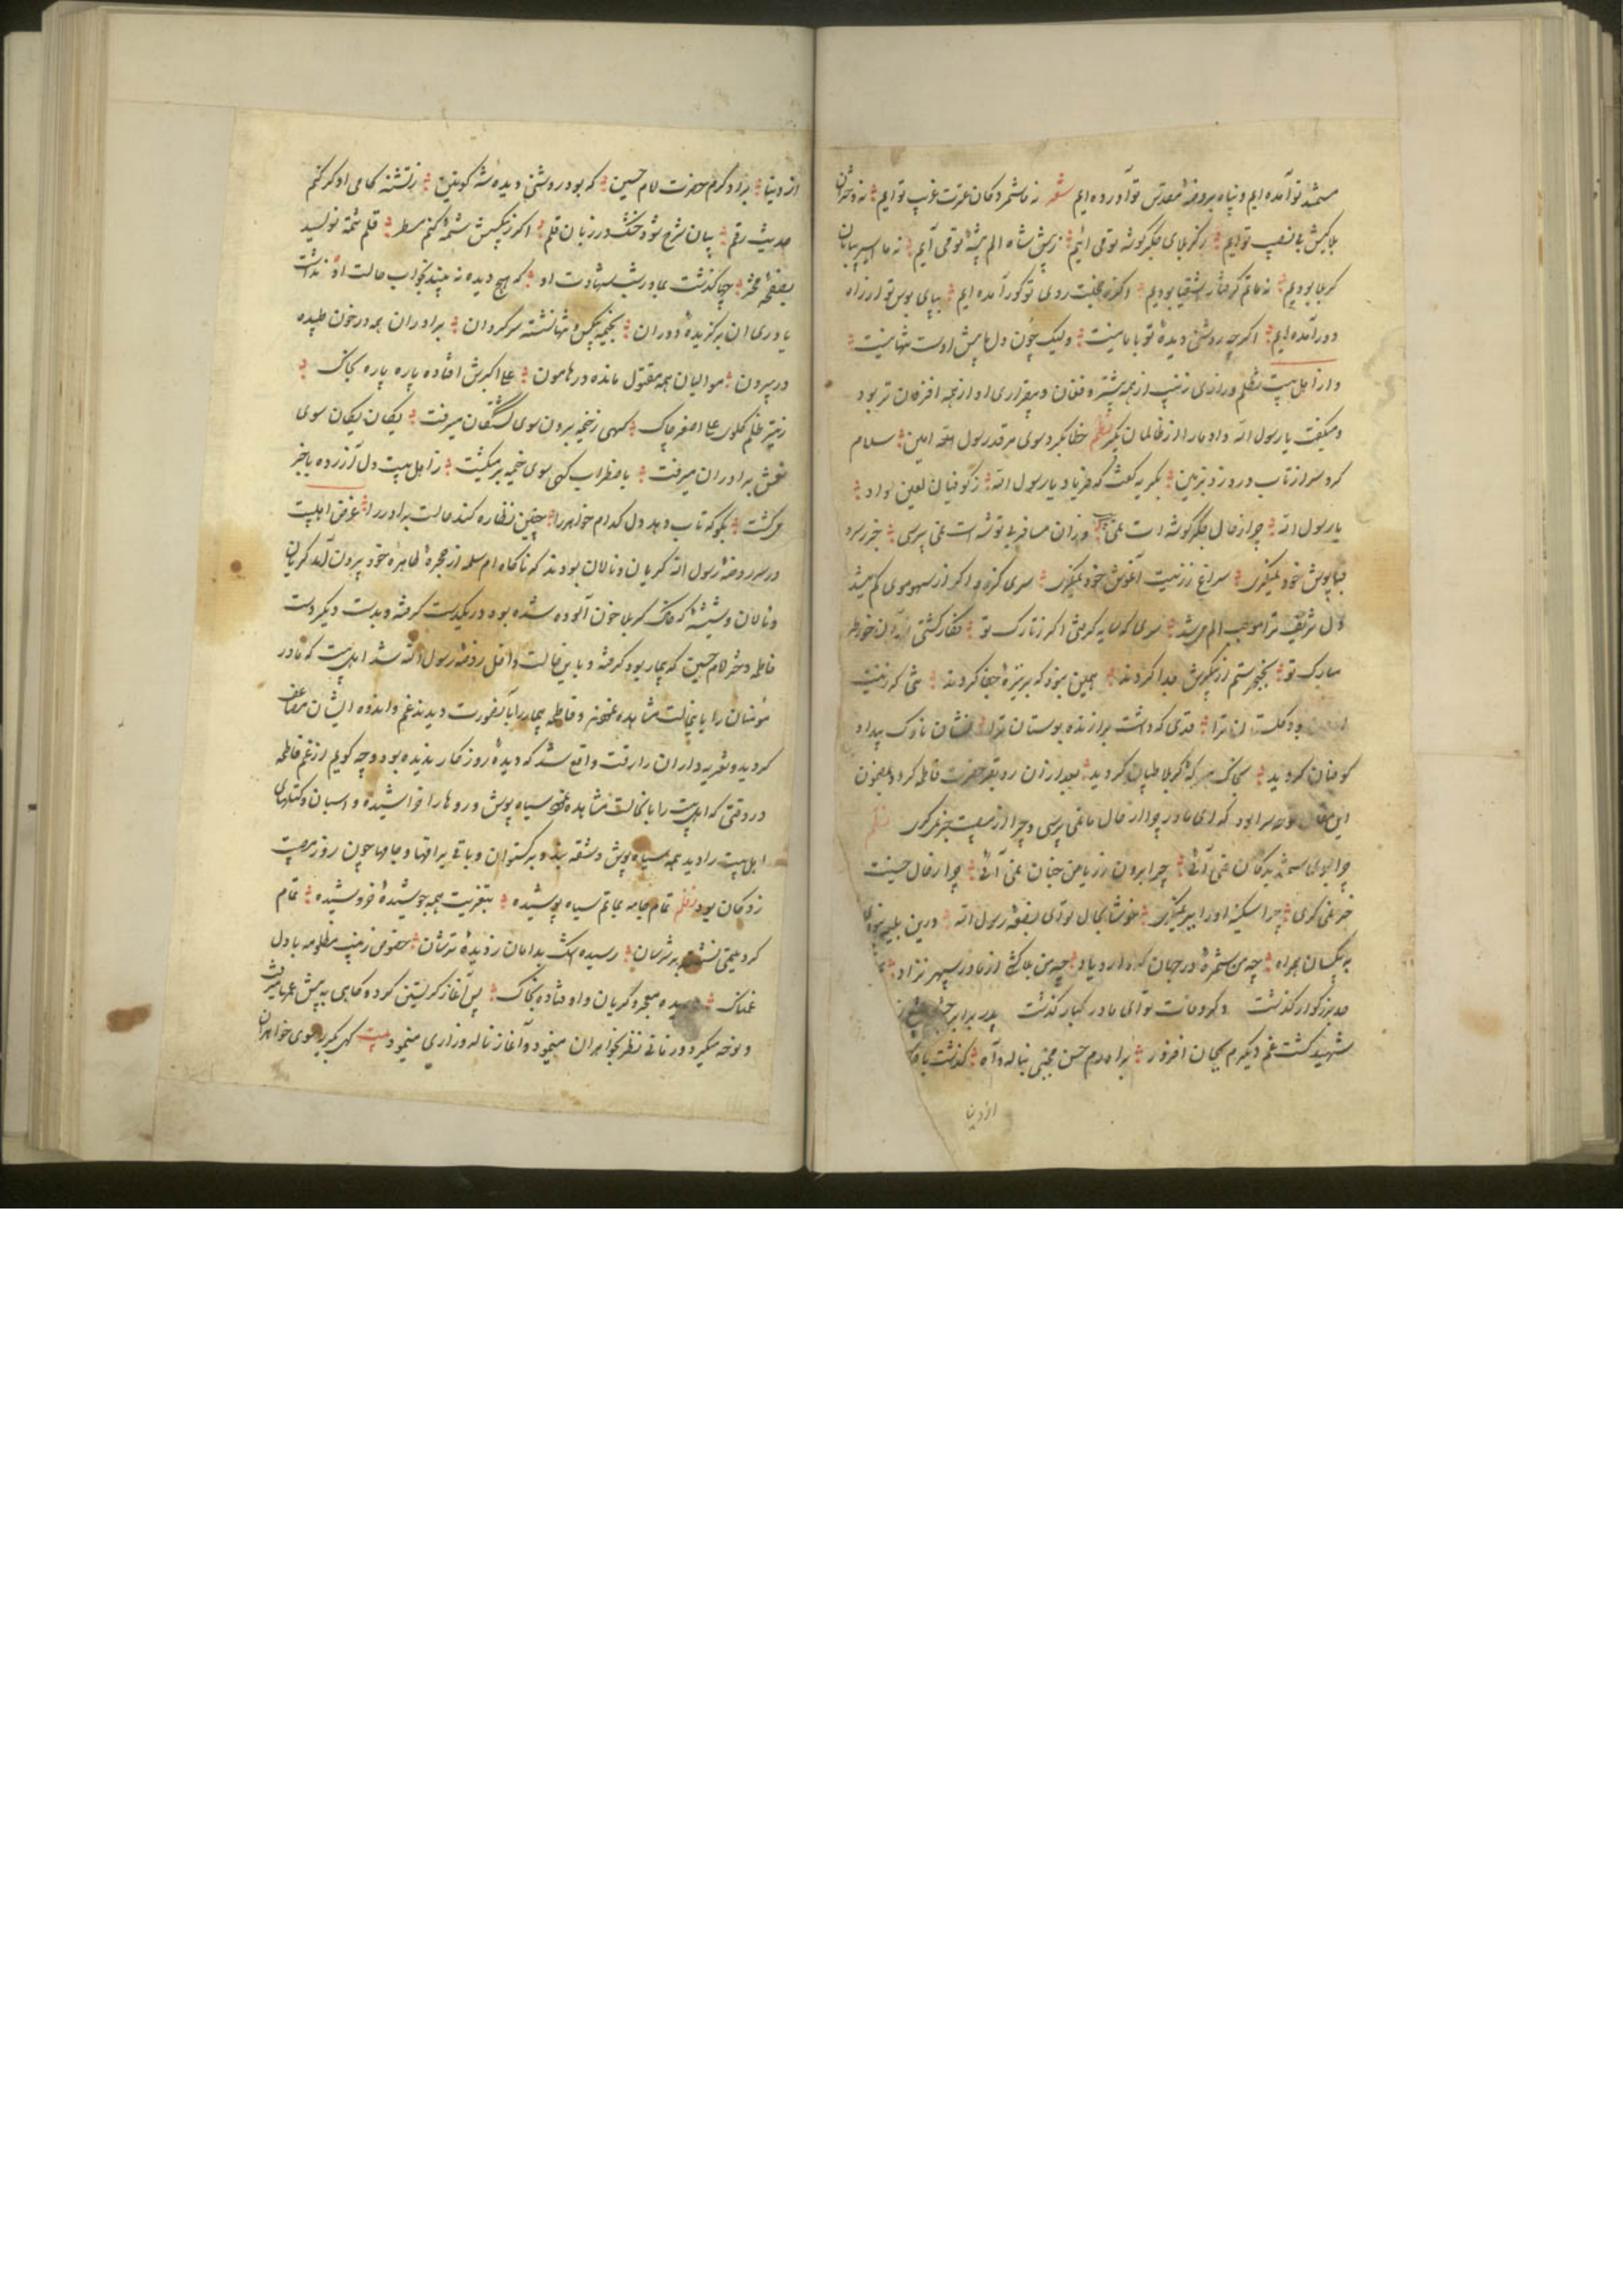 ستمند تو آمده ایم و پناه بروضهٔ مقدس تو آورده ایم شعر نه ما شمردکان عترت غریب توایم نه دختران
بلاکیش بی نصیب توایم ز کربلای جگرگوشه تو می ائیم ز پیش شاه الم پیشهٔ تو می آیم نه ما اسیر بیابان
کربلا بودیم نه ما بدم گرفتار اشقیا بودیم روی تو کور آمده ایم بپای بوس تو از راه
دور آمده ایم اگرچه روشنی دیدهٔ تو با ما نیست ولیک چون دل ما پیش اوست تنها نیست
و از اهل بیت تظلم و زاری زینب از همه بیشتر و فغان و بیقراری او از همه افزون تر بود
و میگفت یا رسول الله داد ما را از ظالمان بگیر نظم خطاب کرد سوی مرقد رسول امین سلام
کرد سر از تاب درد زد بزمین بگریه گفت که فریاد یا رسول الله ز کوفیان لعین داد
یا رسول الله چرا ز حال جگرگوشه ات نمی وزان مسافر بی توشه ات نمی پرسی خبر ز سرو
قباپوش خود نمیگیری سراغ زینت آغوش خود نمیگیری سری کزو اگر از سهو موی کم میشد
دل شریف ترا موجب الم میشد سری که سایه گرفتی اگر ز تارک تو
مبارک تو بخنجر ستم از پیکرش جدا کردند همین نبود که بر نیزهٔ جفا کردند تنی که زینت
بود گلستان ترا قدی که داشت برازنده بوستان ترا نشان ناوک بیداد
کوفیان گردید بخاک معرکهٔ کربلا طپان گردید بعد از آن رو بقبر حضرت فاطمه کرد و بمضمون
این مقال نوحه سرا بود که ای مادر چرا از حال ما نمی پرسی و چرا از زینبت خبر نمیگیری نظم
چرا بسوی ستمدیدگان نمی آئی چرا برون ز ریاض جنان نمی آئی چرا ز حال حسینت
خبر نمی گیری چرا سکینهٔ او را ببر نمیگیری خوشا بحال تو ای بضعهٔ رسول الله درین بلیه نبودی
به بیکسان همراه چه من ستمزده در جهان که دارد یاد چه من بلاکشی از مادر سپهر نزاد
جد بزرگوار گذشت دگر وفات تو ای مادر کبار گذشت پدر برابر
شهید گشت غم دیگرم بجان افزود برادرم حسن مجتبی بناله و آه گذشت
از دنیا
از دنیا برادر دگرم حضرت امام حسین که بود روشنی دیدهٔ شه کونین ز تشنه کامی او گر کنم
حدیث رقم بیان شرح شود خشک در زبان قلم اگر ز بیکسیش شمهٔ کنم سطر قلم نمی نویسد
بصفحهٔ محشر چها گذشت بما در شب شهادت او که هیچ دیده نه بیند بخواب حالت او نداشت
یاوری آن برگزیدهٔ دوران بخیمه بیکس و تنها نشسته سرگردان برادران همه در خون طپیده
در بیرون موالیان همه مقتول مانده در هامون علی اکبرش افتاده پاره پاره بخاک
ز تیر ظلم گلوی علی اصغر چاک گهی ز خیمه برون سوی کشتگان میرفت یکان یکان سوی
نعش برادران میرفت باضطراب گهی سوی خیمه بر میگشت ز اهل بیت دل آزرده با خبر
میگشت بگو که تاب دهد دل کدام خواهر را چنین نظاره کند حالت برادر را غرض اهلبیت
در سر روضهٔ رسول الله گریان و نالان بودند که ناگاه ام سلمه از حجرهٔ طاهرهٔ خود بیرون آمد گریان
و نالان و شیشهٔ که خاک کربلا خون آلوده شده بود در یکدست گرفته و بدست دیگر دست
فاطمه دختر امام حسین که بیمار بود گرفته و باین حالت داخل روضهٔ رسول الله شد اهلبیت که مادر
مومنان را باینحالت مشاهده نمودند و فاطمه بیمار را بآنصورت دیدند غم و اندوه ایشان مضاعف
گردید و تعزیه داران را رقت واقع شد که دیدهٔ روزگار ندیده بود و چه گویم از غم فاطمه
در وقتی که اهلبیت را با بحالت مشاهده نمود سیاه پوش و روها را خراشیده و اسبان و کتلهای
اهل بیت را دید همه سیاه پوش و شقه بند و برگستوان و باقی یراقها و جامها چون روز مصیبت
زدگان بود نظم تمام جامه بماتم سیاه پوشیده بتعزیت همه جوشیده و خروشیده تمام
گرد یتیمی نشسته بر سرشان رسیده اشک بدامان ز دیدهٔ ترشان خصوص زینب مظلومه با دل
غمناک معجر و گریان و اوفتاده بخاک پس آغاز گریستن کرده گاهی به پیش عمه میرفت
و نوحه میکرد و زمانی نظر بخواهران مینمود و آغاز ناله و زاری مینمود بیت گهی بگریه سوی خواهران